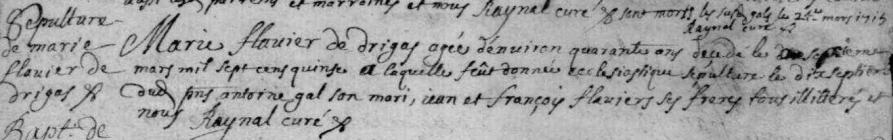 parreins et marroines et nous Raynal curé & sont morts les susd gals le 24e mars 1715
Raynal curé &
Sepulture
de marie
flavier de
drigas &
Marie flavier de drigas agée denviron quarante ans decedé le septieme
mars mil sept cens quinse a laquelle feût donnée ecclesiastique sepulture le dixseptieme
dud pns antoine gal son mari, iean et françois flaviers ses freres tous illitterés et
nous Raynal curé &
Bapt. de